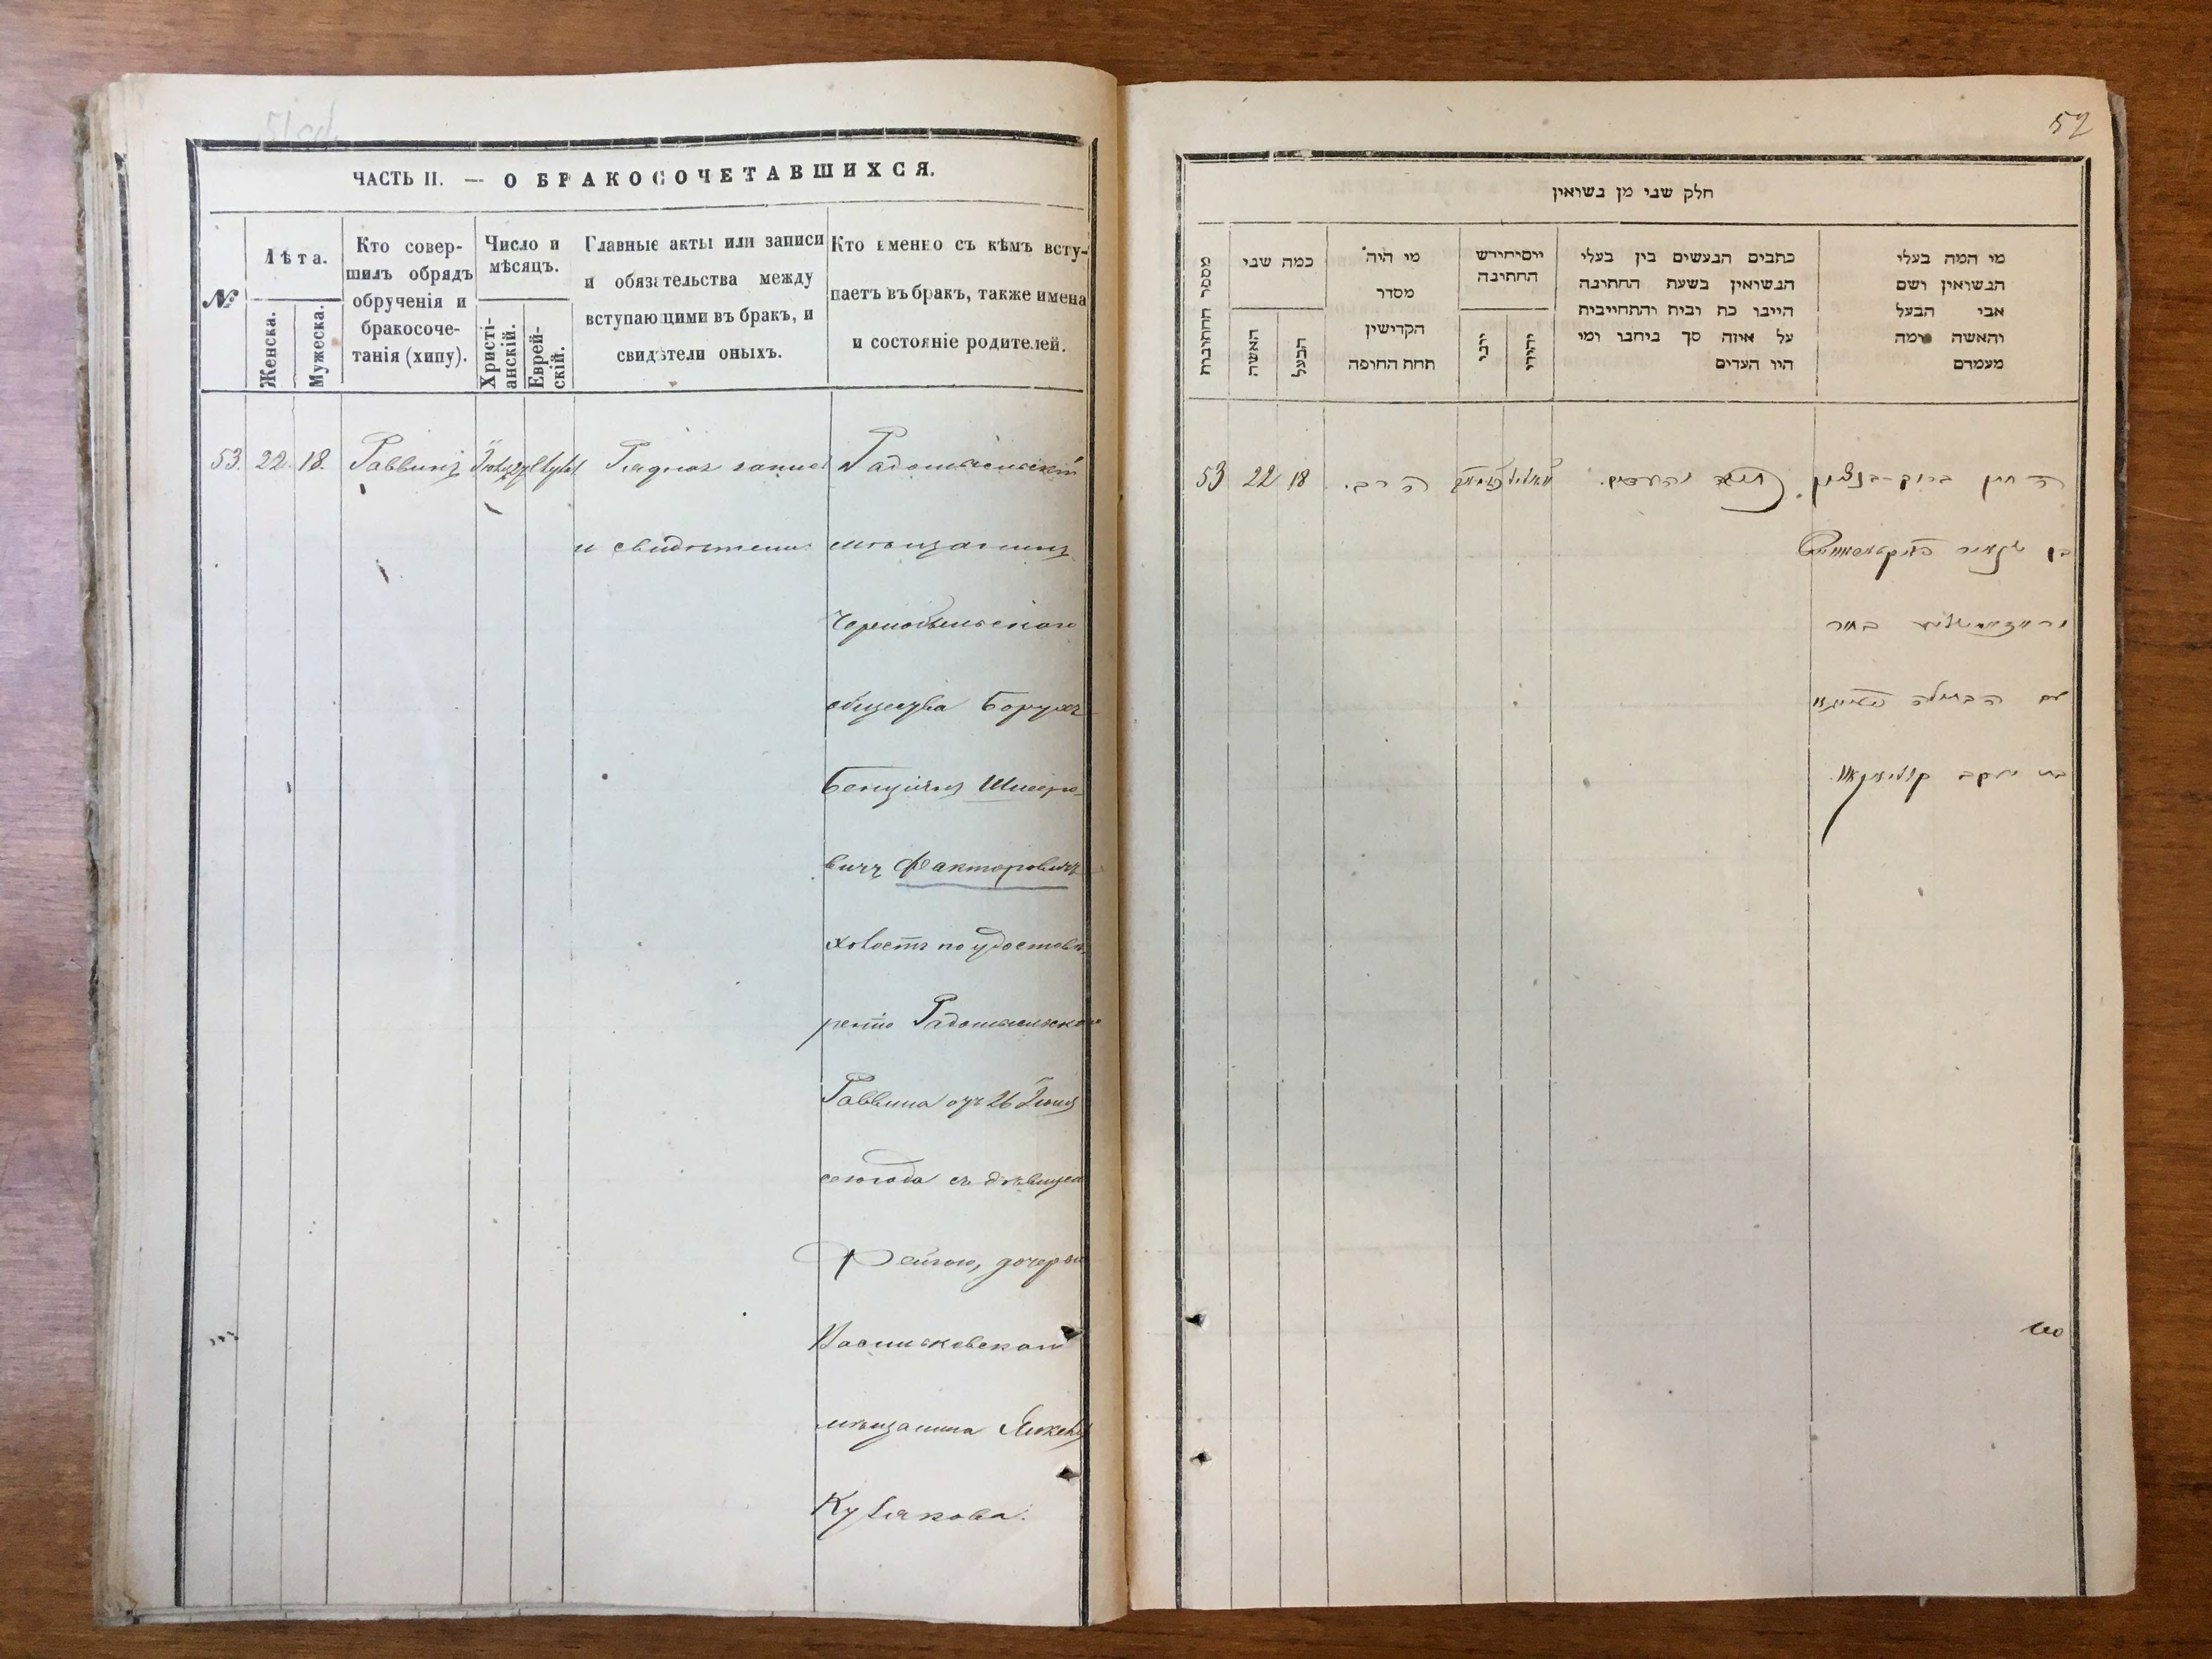 ЧАСТЬ II. — О БРАКОСОЧЕТАВШИХСЯ.
№
Лѣта.
Женска.
Мужеска.
Кто совер-
шилъ обрядъ
обрученія и
бракосоче-
танія (хипу).
Число и
мѣсяцъ.
Христі-
анскій.
Еврей-
скій.
Главные акты или записи
и обязательства между
вступающими въ бракъ, и
свидѣтели оныхъ.
Кто именно съ кѣмъ всту-
паетъ въ бракъ, также имена
и состояніе родителей.
53. 22. 18. Раввинъ Рядная запись Радомысльскій
и свидѣтели мѣщанинъ
Чернобыльскаго
общества Борухъ
Бенціянъ Шнеро-
вичъ Факторовичъ
холостъ по удостовѣ
ренію Радомысльскаго
Раввина отъ 26 Іюня
сего года съ дѣвицею
Фейгою, дочерью
Васильковскаго
мѣщанина Янкеля
Кулякова.
52
חלק שני מן נשואין
מספר החתונות
כמה שני
האשה
הבעל
מי היה
מסדר
הקדישין
תחת החופה
יום וחודש
החתונה
יוני
יהודי
כתבים הנעשים בין בעלי
הנשואין בשעת החתונה
היינו כת ובית והתחייבית
על איזה סך ביחבו ומי
היו העדים
מי המה בעלי
הנשואין ושם
אבי הבעל
והאשה ומה
מעמדם
53 22 18 הרב. והעדים. החתן ברוך-בנציון
בן
בחור
עם הבתולה
בת יעקב